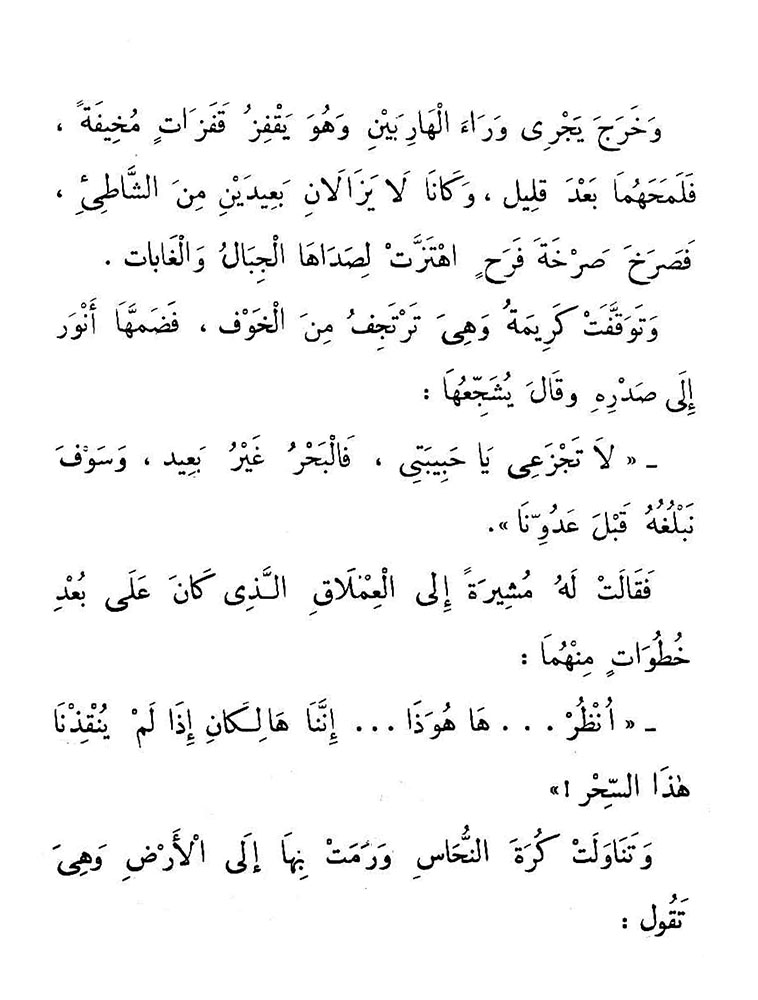 وَخَرَجَ يَجْرِى وَرَاءَ الْهَارِبَيْنِ وَهُوَ يَقْفِزُ قَفَزَاتٍ مُخِيفَةً ،
فَلَمَحَهُمَا بَعْدَ قلِيل ، وَكَانَا لَا يَزَالَانِ بَعِيدَيْنِ مِنَ الشَّاطِئِ ،
فَصَرَخَ صَرْخَةَ فَرَحٍ اهْتَزَّتْ لِصَدَاهَا الْجِبَالُ وَالْغَابات .
وَتَوَقَّفَتْ كَرِيمَةُ وَهِىَ تَرْتَجِفُ مِنَ الْخَوْف ، فَضَمَّهَا أَنْوَر
إِلَى صَدْرِهِ وقَالَ يُشَجِّعُهَا :
ـ « لَا تَجْزَعِى يَا حَبِيبَتِى ، فَالْبَحْرُ غَيْرُ بَعِيد ، وَسَوْفَ
نَبْلُغُهُ قَبْلَ عَدُوِّنَا ».
فَقَالَتْ لَهُ مُشِيرَةً إِلى الْعِمْلَاقِ الَّذِى كَانَ عَلَى بُعْدِ
خُطُوَاتٍ مِنْهُمَا :
ـ « اُنْظُرْ ... هَا هُوَذَا ... إِنَّنَا هَالِكَانِ إِذَا لَمْ يُنْقِذْنَا
هٰذَا السِّحْر ! »
وَتَنَاوَلَتْ كُرَةَ النُّحَاسِ وَرَمَتْ بِهَا إِلَى الْأَرْضِ وَهِىَ
تَقُول :